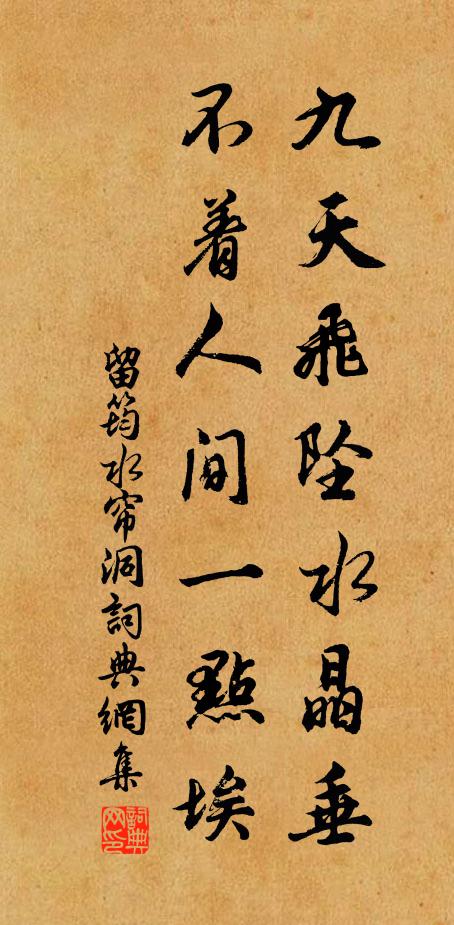 九天飛墜水晶垂
不着人间一點埃
留筠水帘洞詞典網集
詞典网印